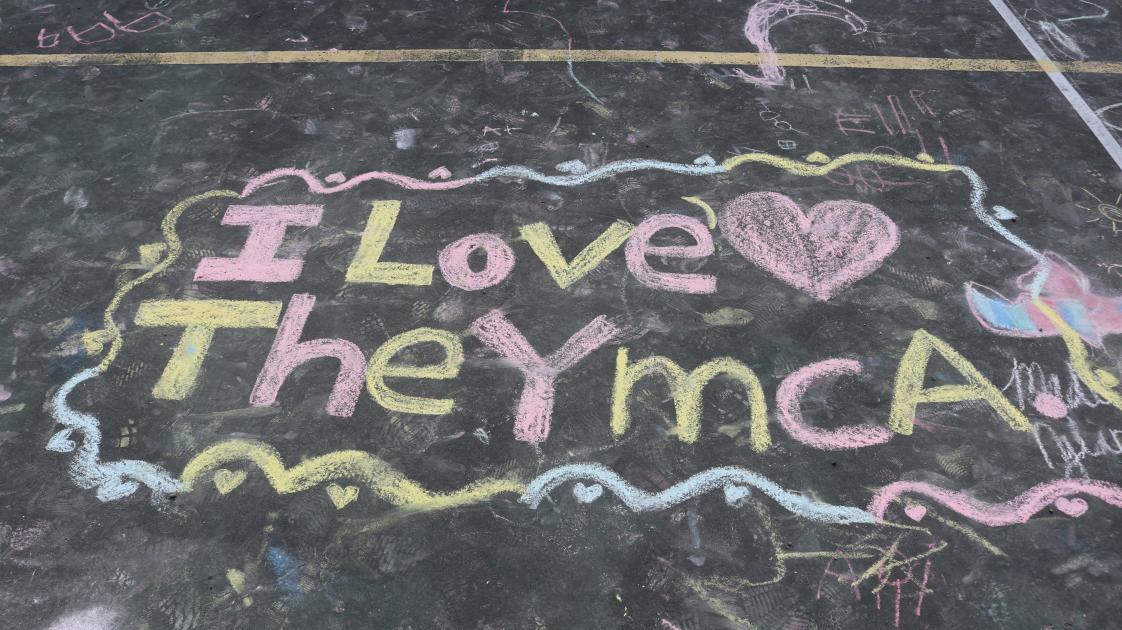 I Love
TheYmcA